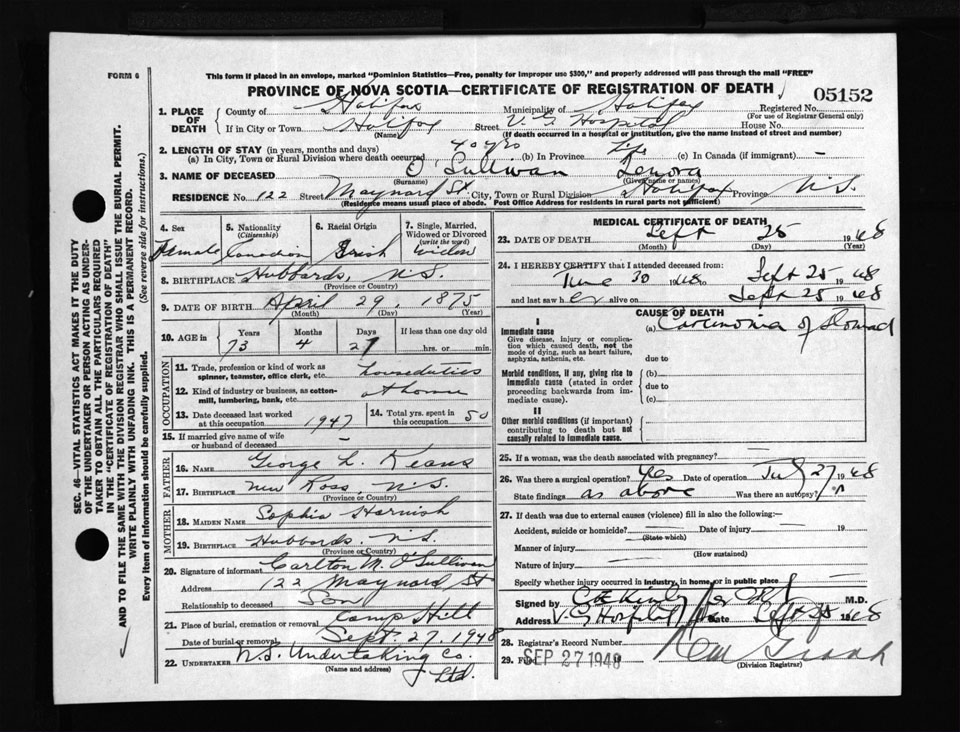 FORM 6
This form if placed in an envelope, marked "Dominion Statistics—Free, penalty for improper use $300," and properly addressed will pass through the mail "FREE"
PROVINCE OF NOVA SCOTIA—CERTIFICATE OF REGISTRATION OF DEATH
05152
1. PLACE OF DEATH
County of Halifax Municipality of Halifax Registered No.
(For use of Registrar General only)
If in City or Town Halifax Street V. G. Hospital House No.
(Name) (If death occurred in a hospital or institution, give the name instead of street and number)
2. LENGTH OF STAY (in years, months and days)
(a) In City, Town or Rural Division where death occurred 40 yrs (b) In Province Life (c) In Canada (if immigrant) —
3. NAME OF DECEASED O'Sullivan Lenora
(Surname) (Given name or names)
RESIDENCE No. 122 Street Maynard St. City, Town or Rural Division Halifax Province N.S.
(Residence means usual place of abode. Post Office Address for residents in rural parts not sufficient)
4. Sex
Female
5. Nationality (Citizenship)
Canadian
6. Racial Origin
Irish
7. Single, Married, Widowed or Divorced (write the word)
Widow
8. BIRTHPLACE Hubbards, N.S.
(Province or Country)
9. DATE OF BIRTH April 29, 1875
(Month) (Day) (Year)
10. AGE in Years Months Days If less than one day old
73 4 27 hrs. or min.
OCCUPATION
11. Trade, profession or kind of work as spinner, teamster, office clerk, etc. housduties
12. Kind of industry or business, as cotton-mill, lumbering, bank, etc. at home
13. Date deceased last worked at this occupation 1947
14. Total yrs. spent in this occupation 50
15. If married give name of wife or husband of deceased —
FATHER
16. NAME George L. Keans
17. BIRTHPLACE New Ross, N.S.
(Province or Country)
MOTHER
18. MAIDEN NAME Sophia Harnish
19. BIRTHPLACE Hubbards, N.S.
(Province or Country)
20. Signature of informant Carlton M. O'Sullivan
Address 122 Maynard St
Relationship to deceased Son
21. Place of burial, cremation or removal Camp Hill
Date of burial or removal Sept. 27, 1948
22. UNDERTAKER N.S. Undertaking Co. Ltd.
(Name and address)
MEDICAL CERTIFICATE OF DEATH
23. DATE OF DEATH Sept 25 1948
(Month) (Day) (Year)
24. I HEREBY CERTIFY that I attended deceased from:
June 30 1948 to Sept 25 1948
and last saw her alive on Sept 25 1948
CAUSE OF DEATH
I
Immediate cause
Give disease, injury or complication which caused death, not the mode of dying, such as heart failure, asphyxia, asthenia, etc.
(a) Carcinoma of Stomach
due to
Morbid conditions, if any, giving rise to immediate cause (stated in order proceeding backwards from immediate cause).
(b)
due to
(c)
II
Other morbid conditions (if important) contributing to death but not causally related to immediate cause.
25. If a woman, was the death associated with pregnancy? —
26. Was there a surgical operation? Yes Date of operation July 27 1948
State findings as above Was there an autopsy? no
27. If death was due to external causes (violence) fill in also the following:
Accident, suicide or homicide? — Date of injury — 19
(State which)
Manner of injury —
(How sustained)
Nature of injury —
Specify whether injury occurred in industry, in home, or in public place
Signed by M.D.
Address V. G. Hospital Date Sept 25 1948
28. Registrar's Record Number
29. Filed SEP 27 1948
(Division Registrar)
SEC. 46—VITAL STATISTICS ACT MAKES IT THE DUTY
OF THE UNDERTAKER OR PERSON ACTING AS UNDER-
TAKER TO OBTAIN ALL THE PARTICULARS REQUIRED
IN THE "CERTIFICATE OF REGISTRATION OF DEATH"
AND TO FILE THE SAME WITH THE DIVISION REGISTRAR WHO SHALL ISSUE THE BURIAL PERMIT.
WRITE PLAINLY WITH UNFADING INK. THIS IS A PERMANENT RECORD.
Every item of information should be carefully supplied. (See reverse side for instructions.)